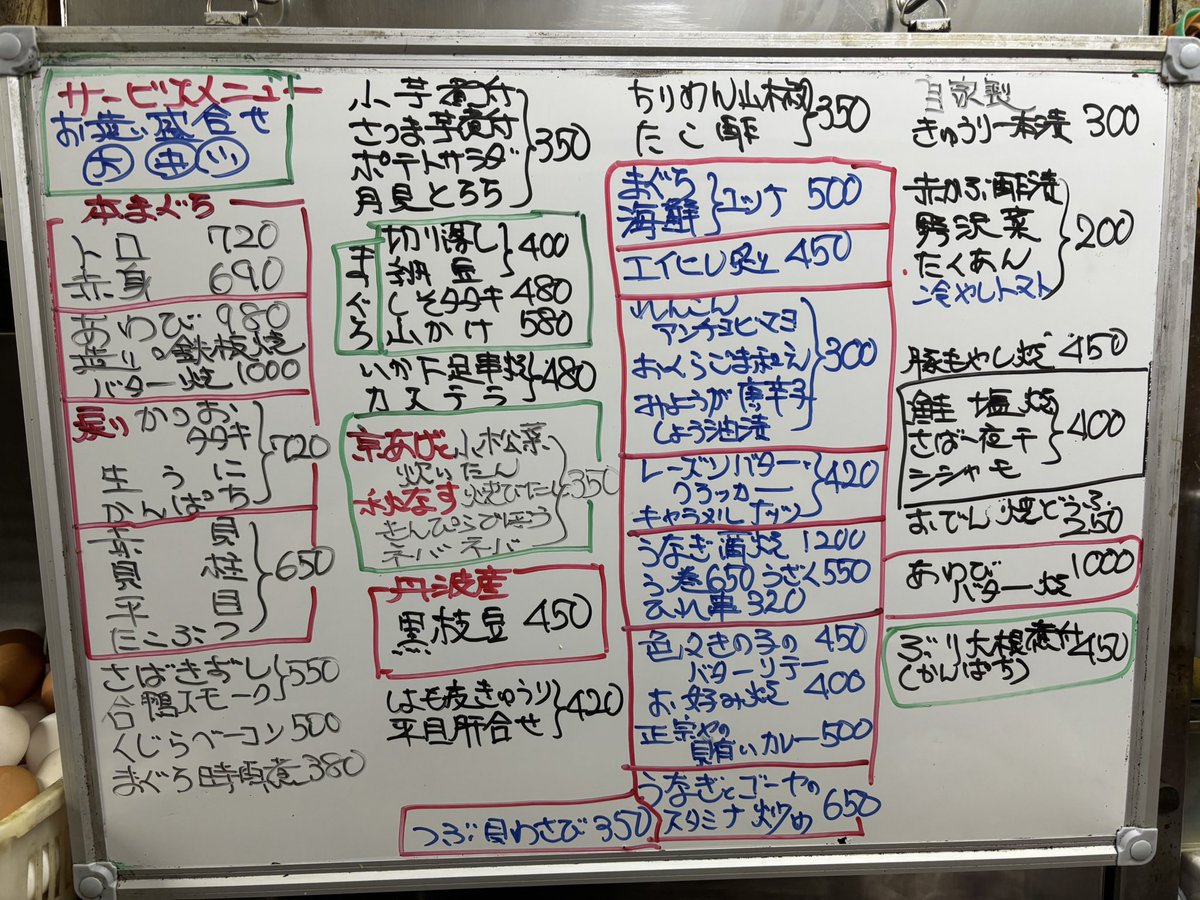 サービスメニュー
お造り盛合せ
大 中 小
本まぐろ
トロ 720
赤身 690
あわび 980
造り。鉄板焼
バター焼1000
戻り かつお、
タタキ
生うに
かんぱち
720
赤貝
貝柱
平目
たこぶつ
650
さばきずし
合鴨スモーク
550
くじらベーコン 500
まぐろ時雨煮 380
小芋煮付
さつま芋煮付
ポテトサラダ
月見とろろ
350
まぐろ
切り落し
納豆
400
しそタタキ 480
山かけ 580
いか下足串焼
カステラ
480
京あげと小松菜
炊いたん
水なす 焼びたし
きんぴらごぼう
ネバネバ
350
丹波産
黒枝豆 450
はも皮きゅうり
平目肝合せ
420
つぶ貝わさび 350
ちりめん山椒
たこ酢
350
まぐろ
海鮮
ユッケ 500
エイヒレ炙り 450
れんこん
アンチョビマヨ
おくらごま和え
みょうが唐辛子
しょう油漬
300
レーズンバター・
クラッカー
キャラメルナッツ
420
うなぎ蒲焼 1200
う巻650 うざく550
ひれ串 320
色々きの子の 450
バターソテー
お好み焼 400
正宗やの
賄いカレー 500
うなぎとゴーヤの
スタミナ炒め 650
自家製
きゅうり一本漬 300
赤かぶ酢漬
野沢菜
たくあん
冷やしトマト
200
豚もやし炒 450
鮭塩焼
さば一夜干
シシャモ
400
おでん 焼どうふ
250
あわび
バター焼 1000
ぶり大根煮付 450
(かんぱち)